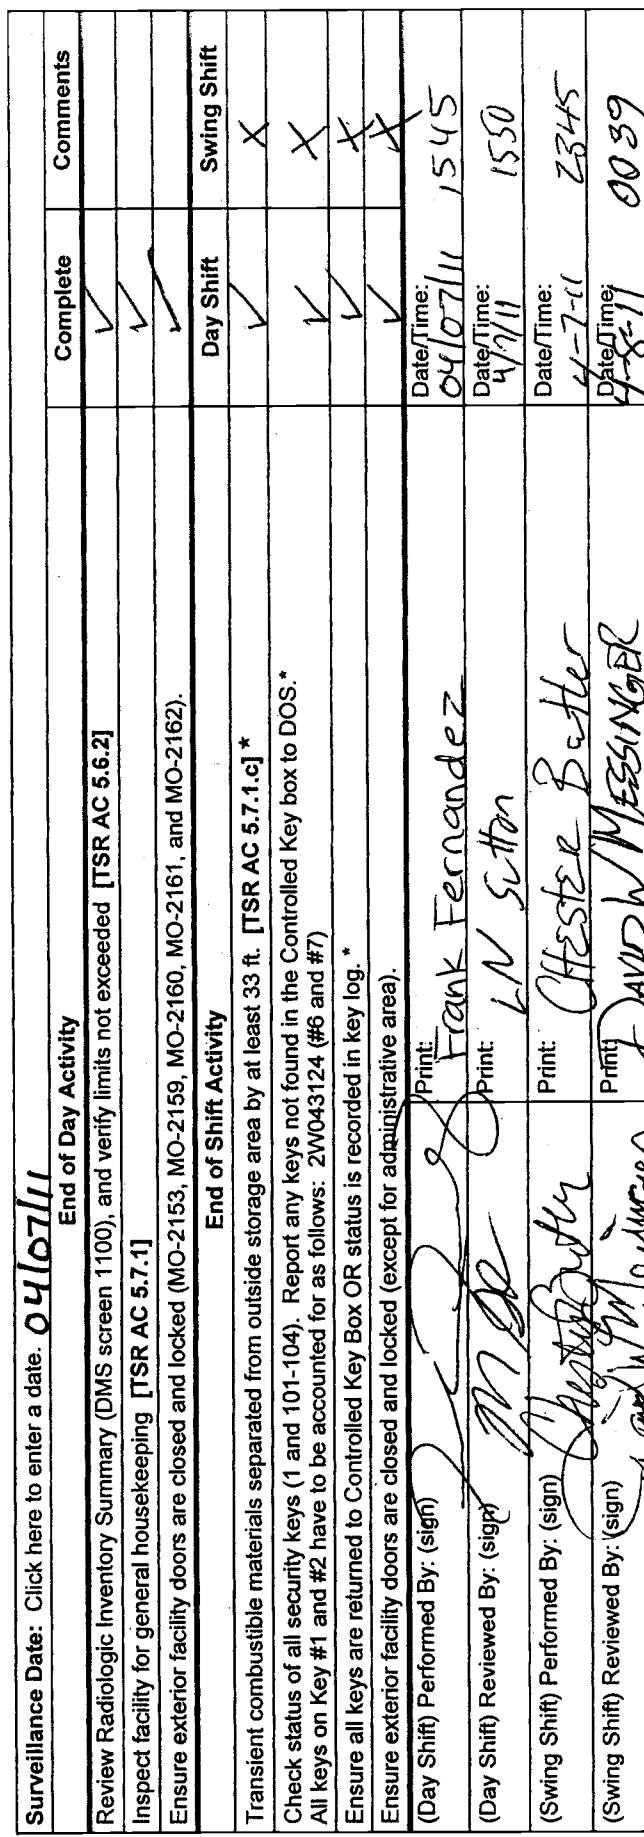 Surveillance Date: Click here to enter a date. 04/07/11
End of Day Activity Complete Comments
Review Radiologic Inventory Summary (DMS screen 1100), and verify limits not exceeded [TSR AC 5.6.2] ✓
Inspect facility for general housekeeping [TSR AC 5.7.1] ✓
Ensure exterior facility doors are closed and locked (MO-2153, MO-2159, MO-2160, MO-2161, and MO-2162). ✓
End of Shift Activity Day Shift Swing Shift
Transient combustible materials separated from outside storage area by at least 33 ft. [TSR AC 5.7.1.c] * ✓ X
Check status of all security keys (1 and 101-104). Report any keys not found in the Controlled Key box to DOS.*
All keys on Key #1 and #2 have to be accounted for as follows: 2W043124 (#6 and #7) ✓ X
Ensure all keys are returned to Controlled Key Box OR status is recorded in key log. * ✓ X
Ensure exterior facility doors are closed and locked (except for administrative area). ✓ X
(Day Shift) Performed By: (sign) Print: Frank Fernandez Date/Time: 04/07/11 1545
(Day Shift) Reviewed By: (sign) Print: LN Sutton Date/Time: 4/7/11 1550
(Swing Shift) Performed By: (sign) Print: Chester Butler Date/Time: 4-7-11 2345
(Swing Shift) Reviewed By: (sign) Print: DAVID W MESSINGER Date/Time: 4-8-11 0039